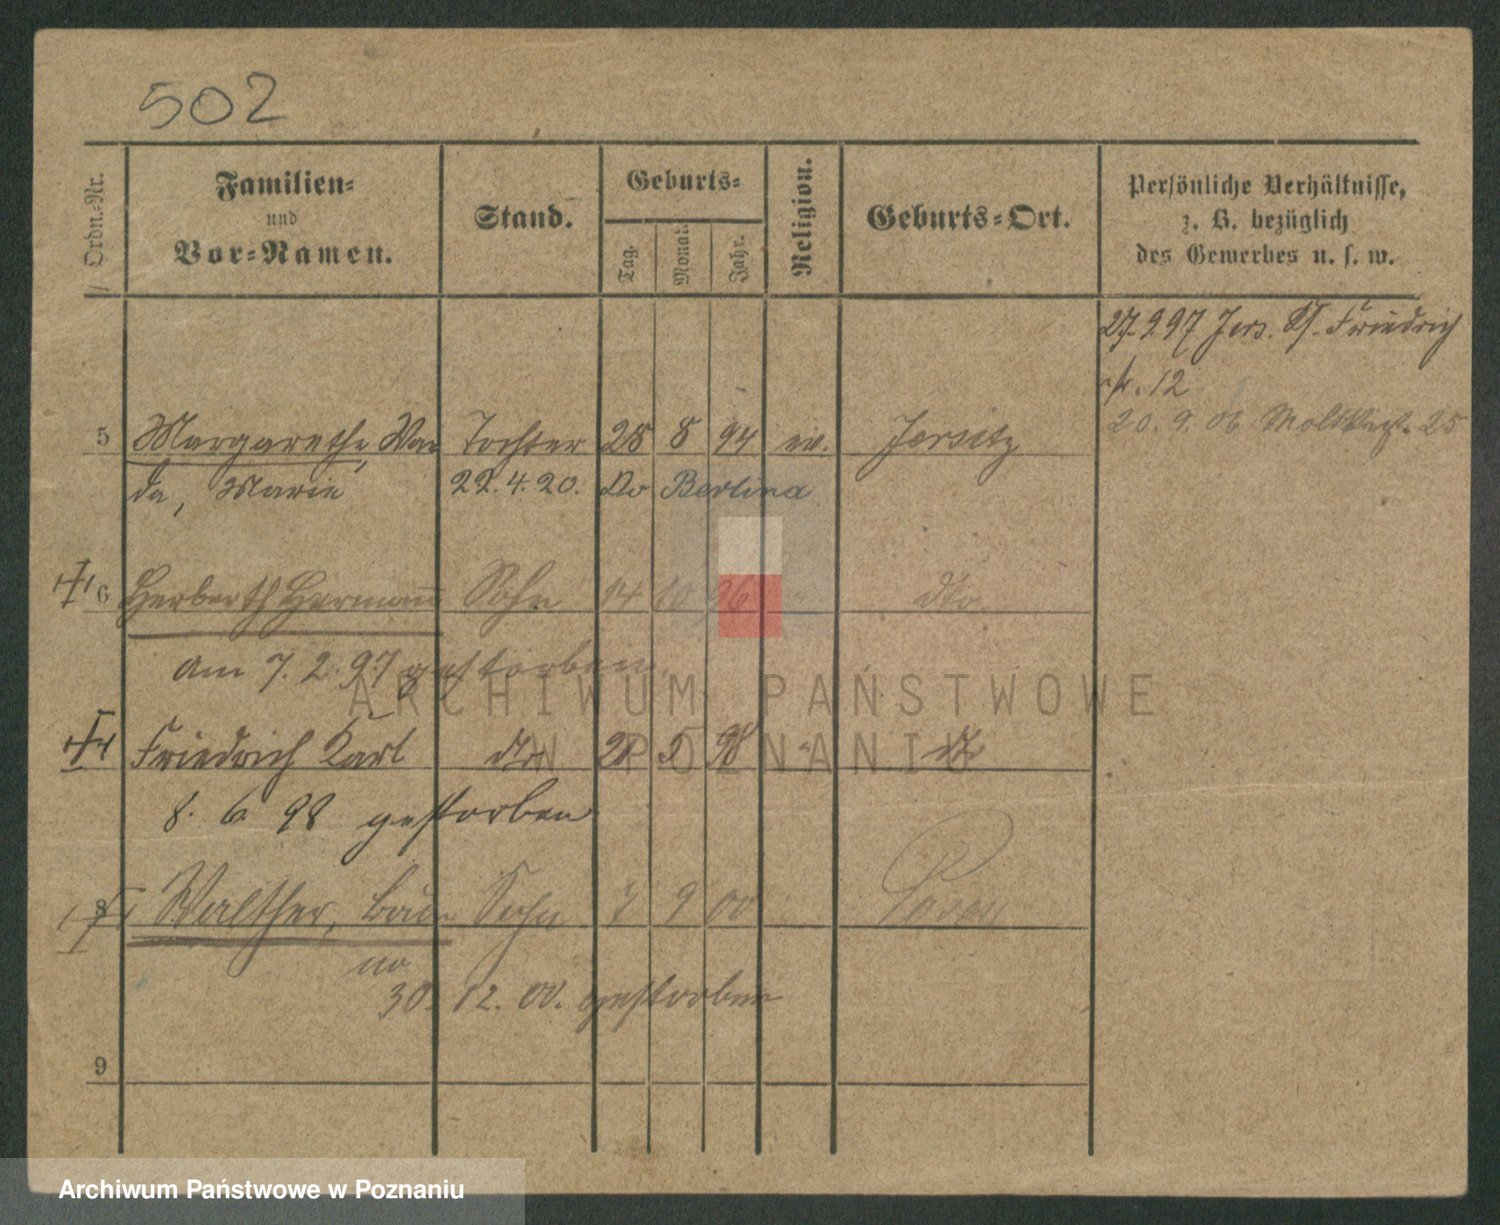 502
Ordn.-Nr.
Familien-
und
Vor-Namen.
Stand.
Geburts-
Tag.
Monat.
Jahr.
Religion.
Geburts-Ort.
Persönliche Verhältnisse,
z. B. bezüglich
des Gewerbes u. s. w.
27.9.97 Jers. Friedrich
str. 12
20. 9. 06 Moltkestr. 25
5 Margarethe, Wan Tochter 28 8 94 ev. Jersitz
da, Marie 22.4.20. Do Berlina
6 Herberth Hermann Sohn 14 10 96 " dto.
am 7. 2. 97 gestorben
Friedrich Karl dto 5 98 " dto
8. 6. 98 gestorben
8 Walther, Bru Sohn 7 9 00 Posen
no
30. 12. 00. gestorben
9
ARCHIWUM PAŃSTWOWE
W POZNANIU
Archiwum Państwowe w Poznaniu